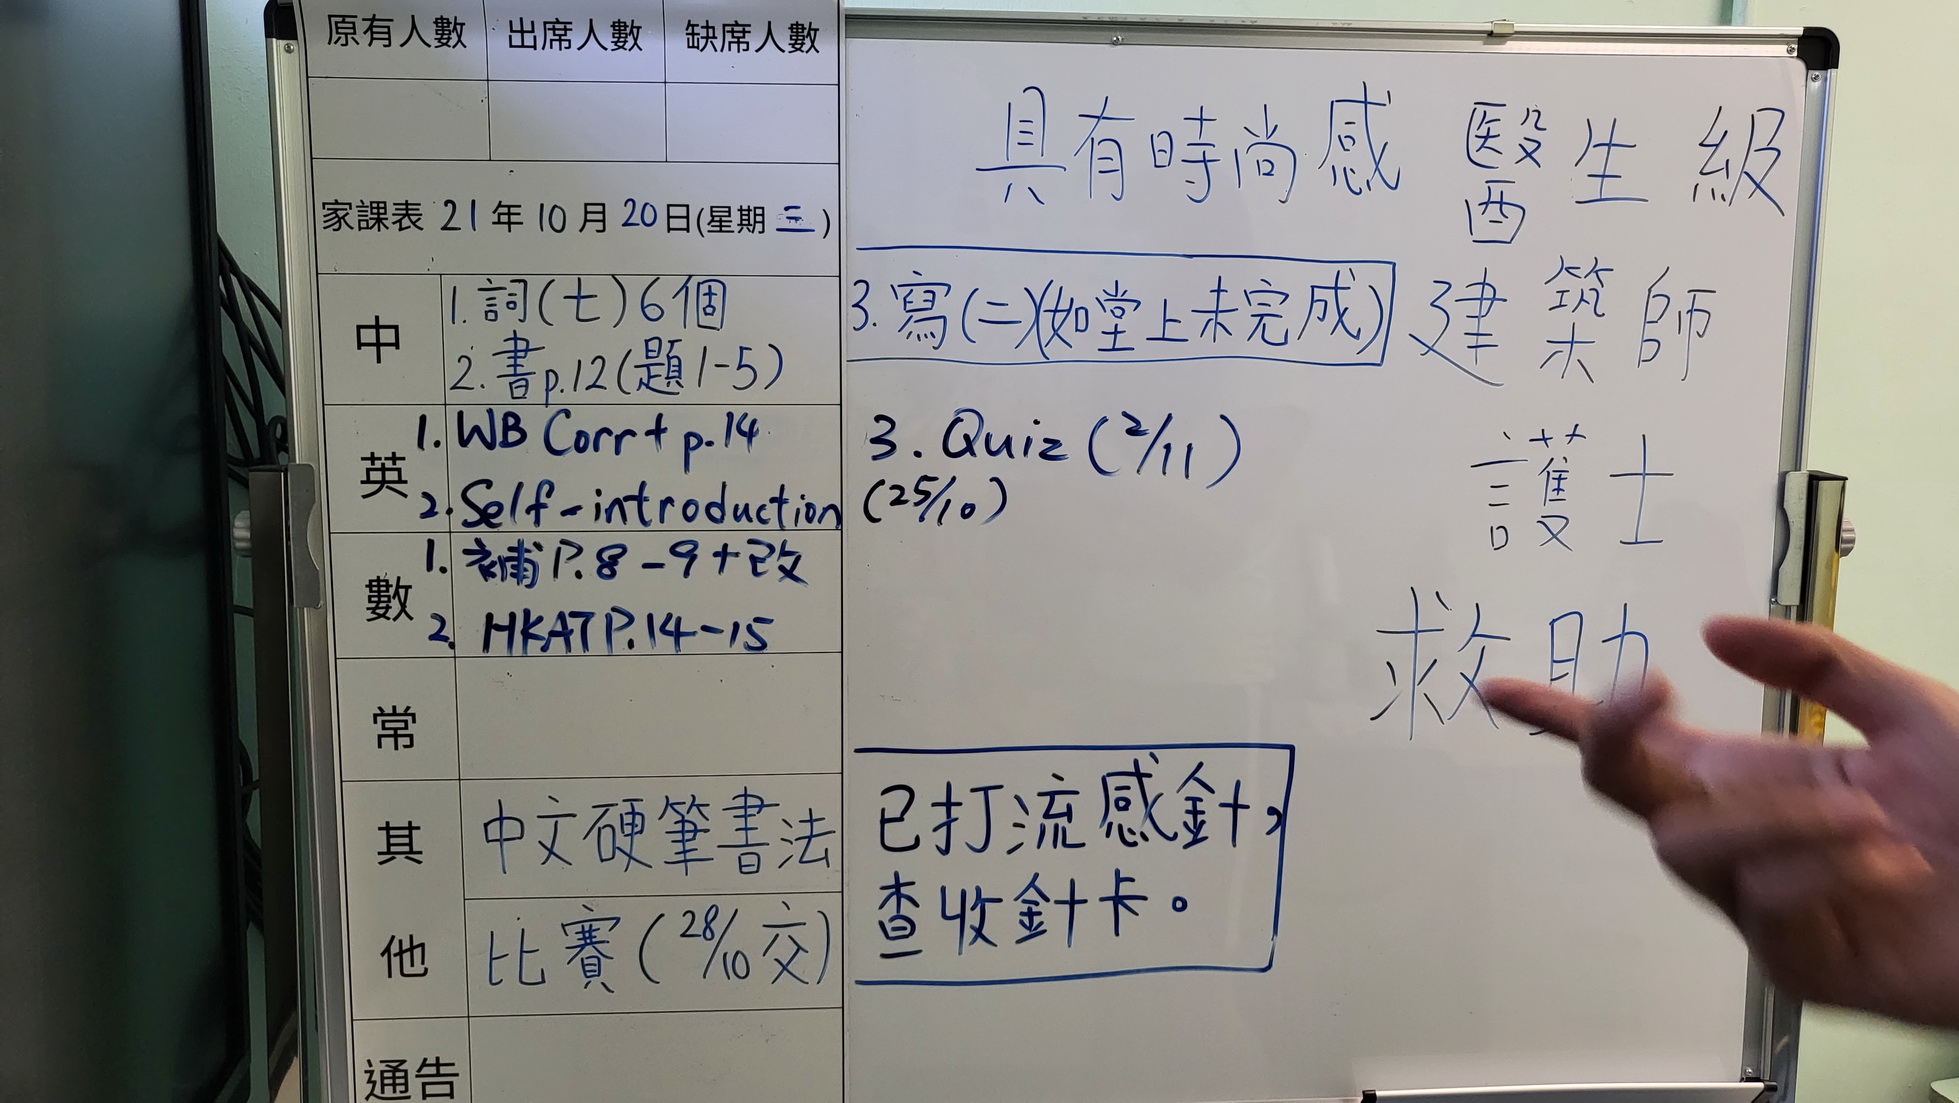 原有人數 出席人數 缺席人數
家課表 21年10月20日(星期三)
中
1. 詞(七)6個
2. 書p.12(題1-5)
3. 寫(二)(如堂上未完成)
英
1. WB Corr+ p.14
2. Self-introduction (25/10)
3. Quiz (2/11)
數
1. 補P.8-9+改
2. HKAT P.14-15
常
其他
中文硬筆書法
比賽(28/10交)
通告
已打流感針,
查收針卡。
具有時尚感
醫生級
建築師
護士
救助